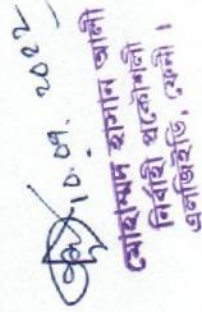 ১০.০৭.২০২২
মোহাম্মদ হাসান আলী
নির্বাহী প্রকৌশলী
এলজিইডি, ফেনী।